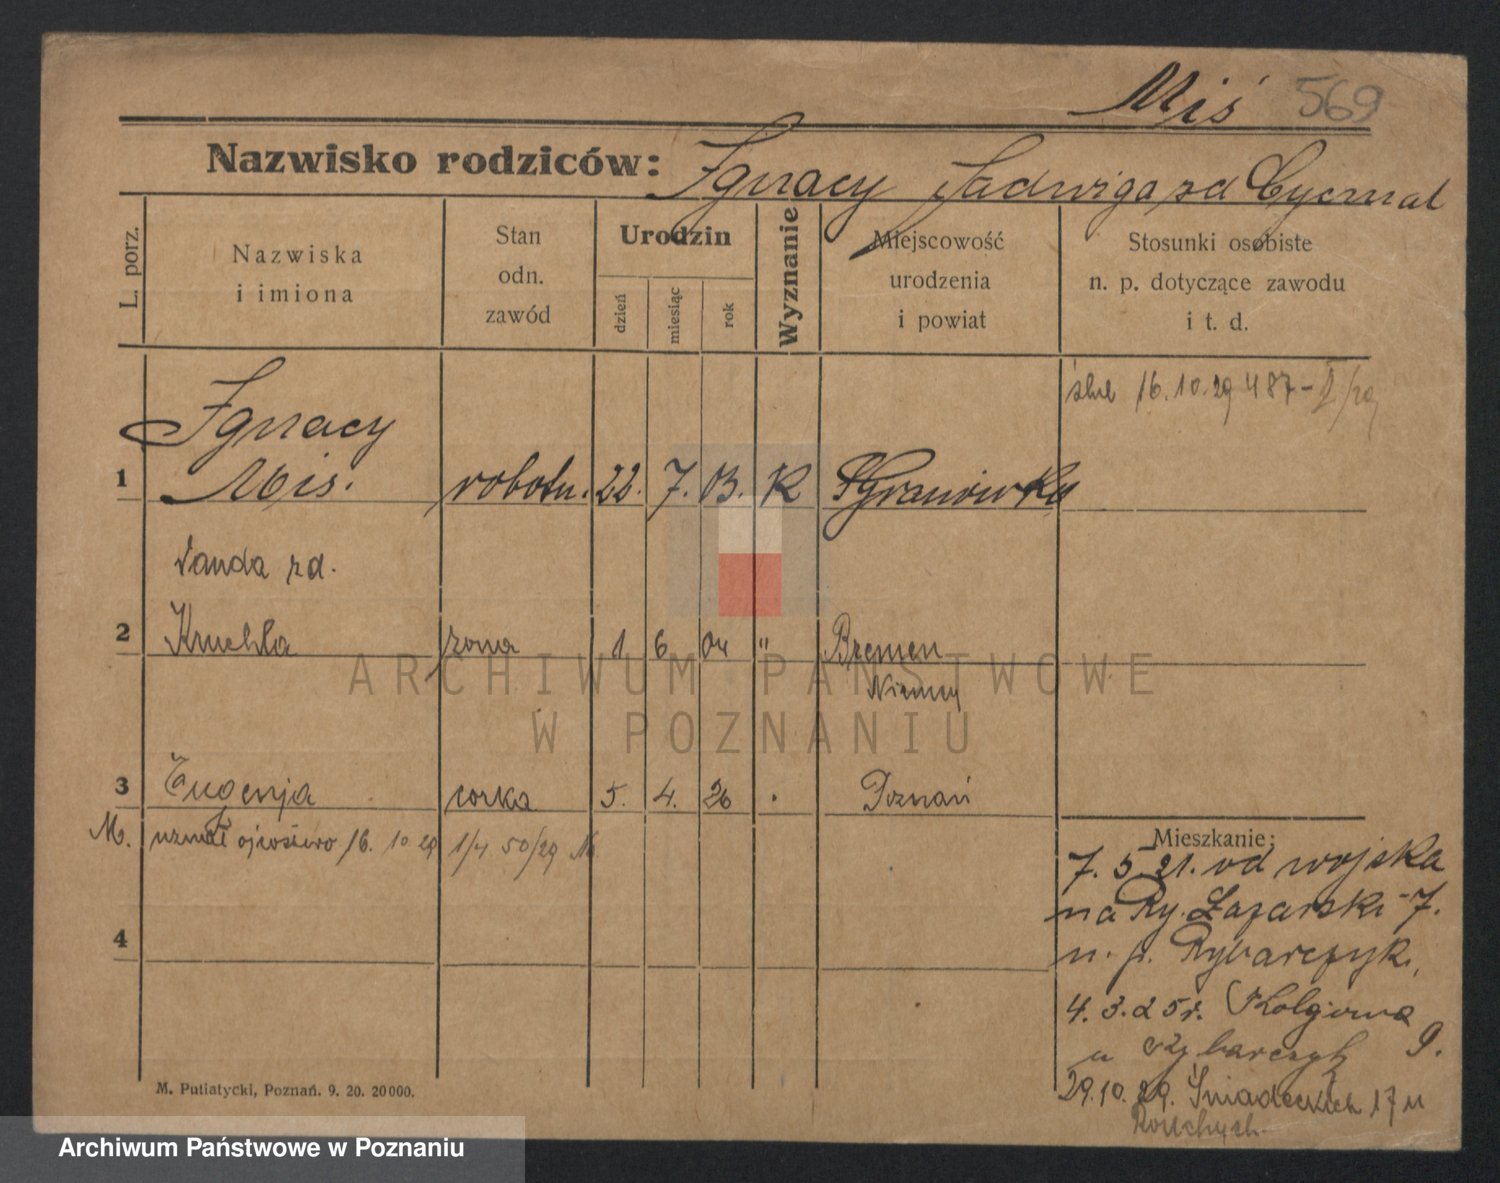 Miś 569
Nazwisko rodziców: Ignacy Jadwiga zd
L. porz.
Nazwiska i imiona
Stan odn. zawód
Urodzin
dzień miesiąc rok
Wyznanie
Miejscowość urodzenia i powiat
Stosunki osobiste n. p. dotyczące zawodu i t. d.
ślub 16.10.29 487-
Ignacy
1 Mis. robotn. 22. 7. 03. K
Wanda zd.
2 żona 1 6 04 " Bremen
Niemcy
3 Eugenja corka 5. 4. 26 . Poznań
M. uznał ojcostwo 16. 10 29 1/4 50/29
4
Mieszkanie:
7. 5 21. od wojska
na Ry. Łazarski 7.
u. p. Rybarczyk.
4. 3. 25 r.
u Rybarczyk 9.
29.10.29. Śniadeckich 17 u
M. Putiatycki, Poznań. 9. 20. 20000.
ARCHIWUM PAŃSTWOWE
W POZNANIU
Archiwum Państwowe w Poznaniu